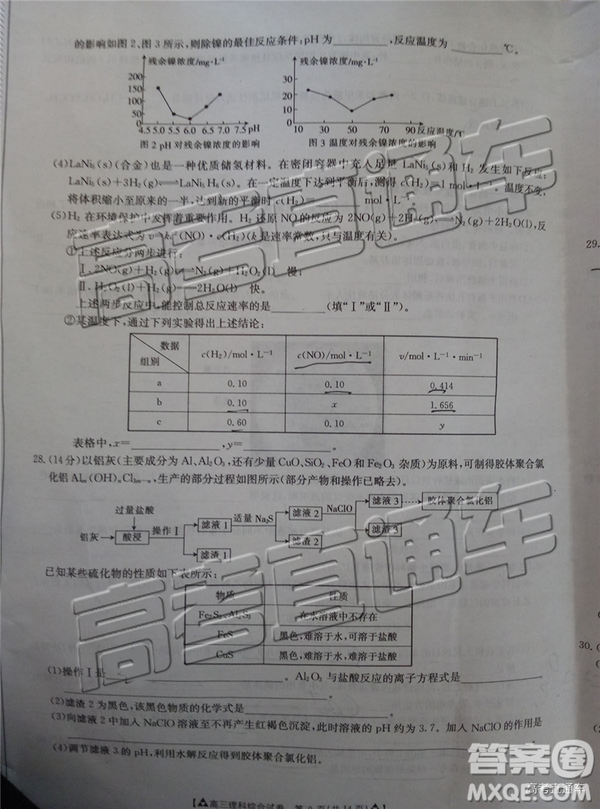 的影响如图2、图3所示,则除镍的最佳反应条件:pH为________,反应温度为________℃。
残余镍浓度/mg·L⁻¹
200
150
100
50
0
4.5 5.0 5.5 6.0 6.5 7.0 7.5 pH
图2 pH对残余镍浓度的影响
残余镍浓度/mg·L⁻¹
30
20
10
0
10 30 50 70 90 反应温度/℃
图3 温度对残余镍浓度的影响
(4)LaNi₅(s)(合金)也是一种优质储氢材料。在密闭容器中充有足量的LaNi₅(s)和H₂发生如下反应:
LaNi₅(s)+3H₂(g) LaNi₅H₆(s)。在一定温度下达到平衡后,测得c(H₂) 1 mol·L⁻¹。温度不变,
将体积缩小至原来的一半,达到新的平衡时c(H₂) mol·L⁻¹
(5)H₂在环境保护中发挥着重要作用。H₂还原NO的反应为2NO(g)+2H₂(g) N₂(g)+2H₂O(l),反
应速率表达式为v (NO)·c(H₂)(k是速率常数,只与温度有关)。
①上述反应分两步进行:
Ⅰ.2NO(g)+H₂(g) N₂(g)+H₂O₂(l) 慢;
Ⅱ.H₂O₂(l)+H₂(g) 2H₂O(l) 快。
上述两步反应中,能控制总反应速率的是________(填“Ⅰ”或“Ⅱ”)。
②某温度下,通过下列实验得出上述结论:
数据 组别 c(H₂)/mol·L⁻¹ c(NO)/mol·L⁻¹ v/mol·L⁻¹·min⁻¹
a 0.10 0.10 0.414
b 0.10 x 1.656
c 0.60 0.10 y
表格中,x=________,y=________。
28.(14分)以铝灰(主要成分为Al、Al₂O₃,还有少量CuO、SiO₂、FeO和Fe₂O₃杂质)为原料,可制得胶体聚合氯
化铝Alₘ(OH)ₙCl₃ₘ₋ₙ,生产的部分过程如图所示(部分产物和操作已略去)。
过量盐酸
铝灰 酸浸 操作Ⅰ 滤液1 适量Na₂S 滤液2 NaClO 滤液3 胶体聚合氯化铝
滤渣1 滤渣2 滤渣3
已知某些硫化物的性质如下表所示:
物质 性质
Fe₂S₃、Al₂S₃ 在水溶液中不存在
FeS 黑色,难溶于水,可溶于盐酸
CuS 黑色,难溶于水,难溶于盐酸
(1)操作Ⅰ是________。Al₂O₃与盐酸反应的离子方程式是________
(2)滤渣2为黑色,该黑色物质的化学式是________。
(3)向滤液2中加入NaClO溶液至不再产生红褐色沉淀,此时溶液的pH约为3.7。加入NaClO的作用是
________。
(4)调节滤液3的pH,利用水解反应得到胶体聚合氯化铝。
高三理科综合试卷
29.
30.
高考直通车
高考直通车
答案圈
高考直通车